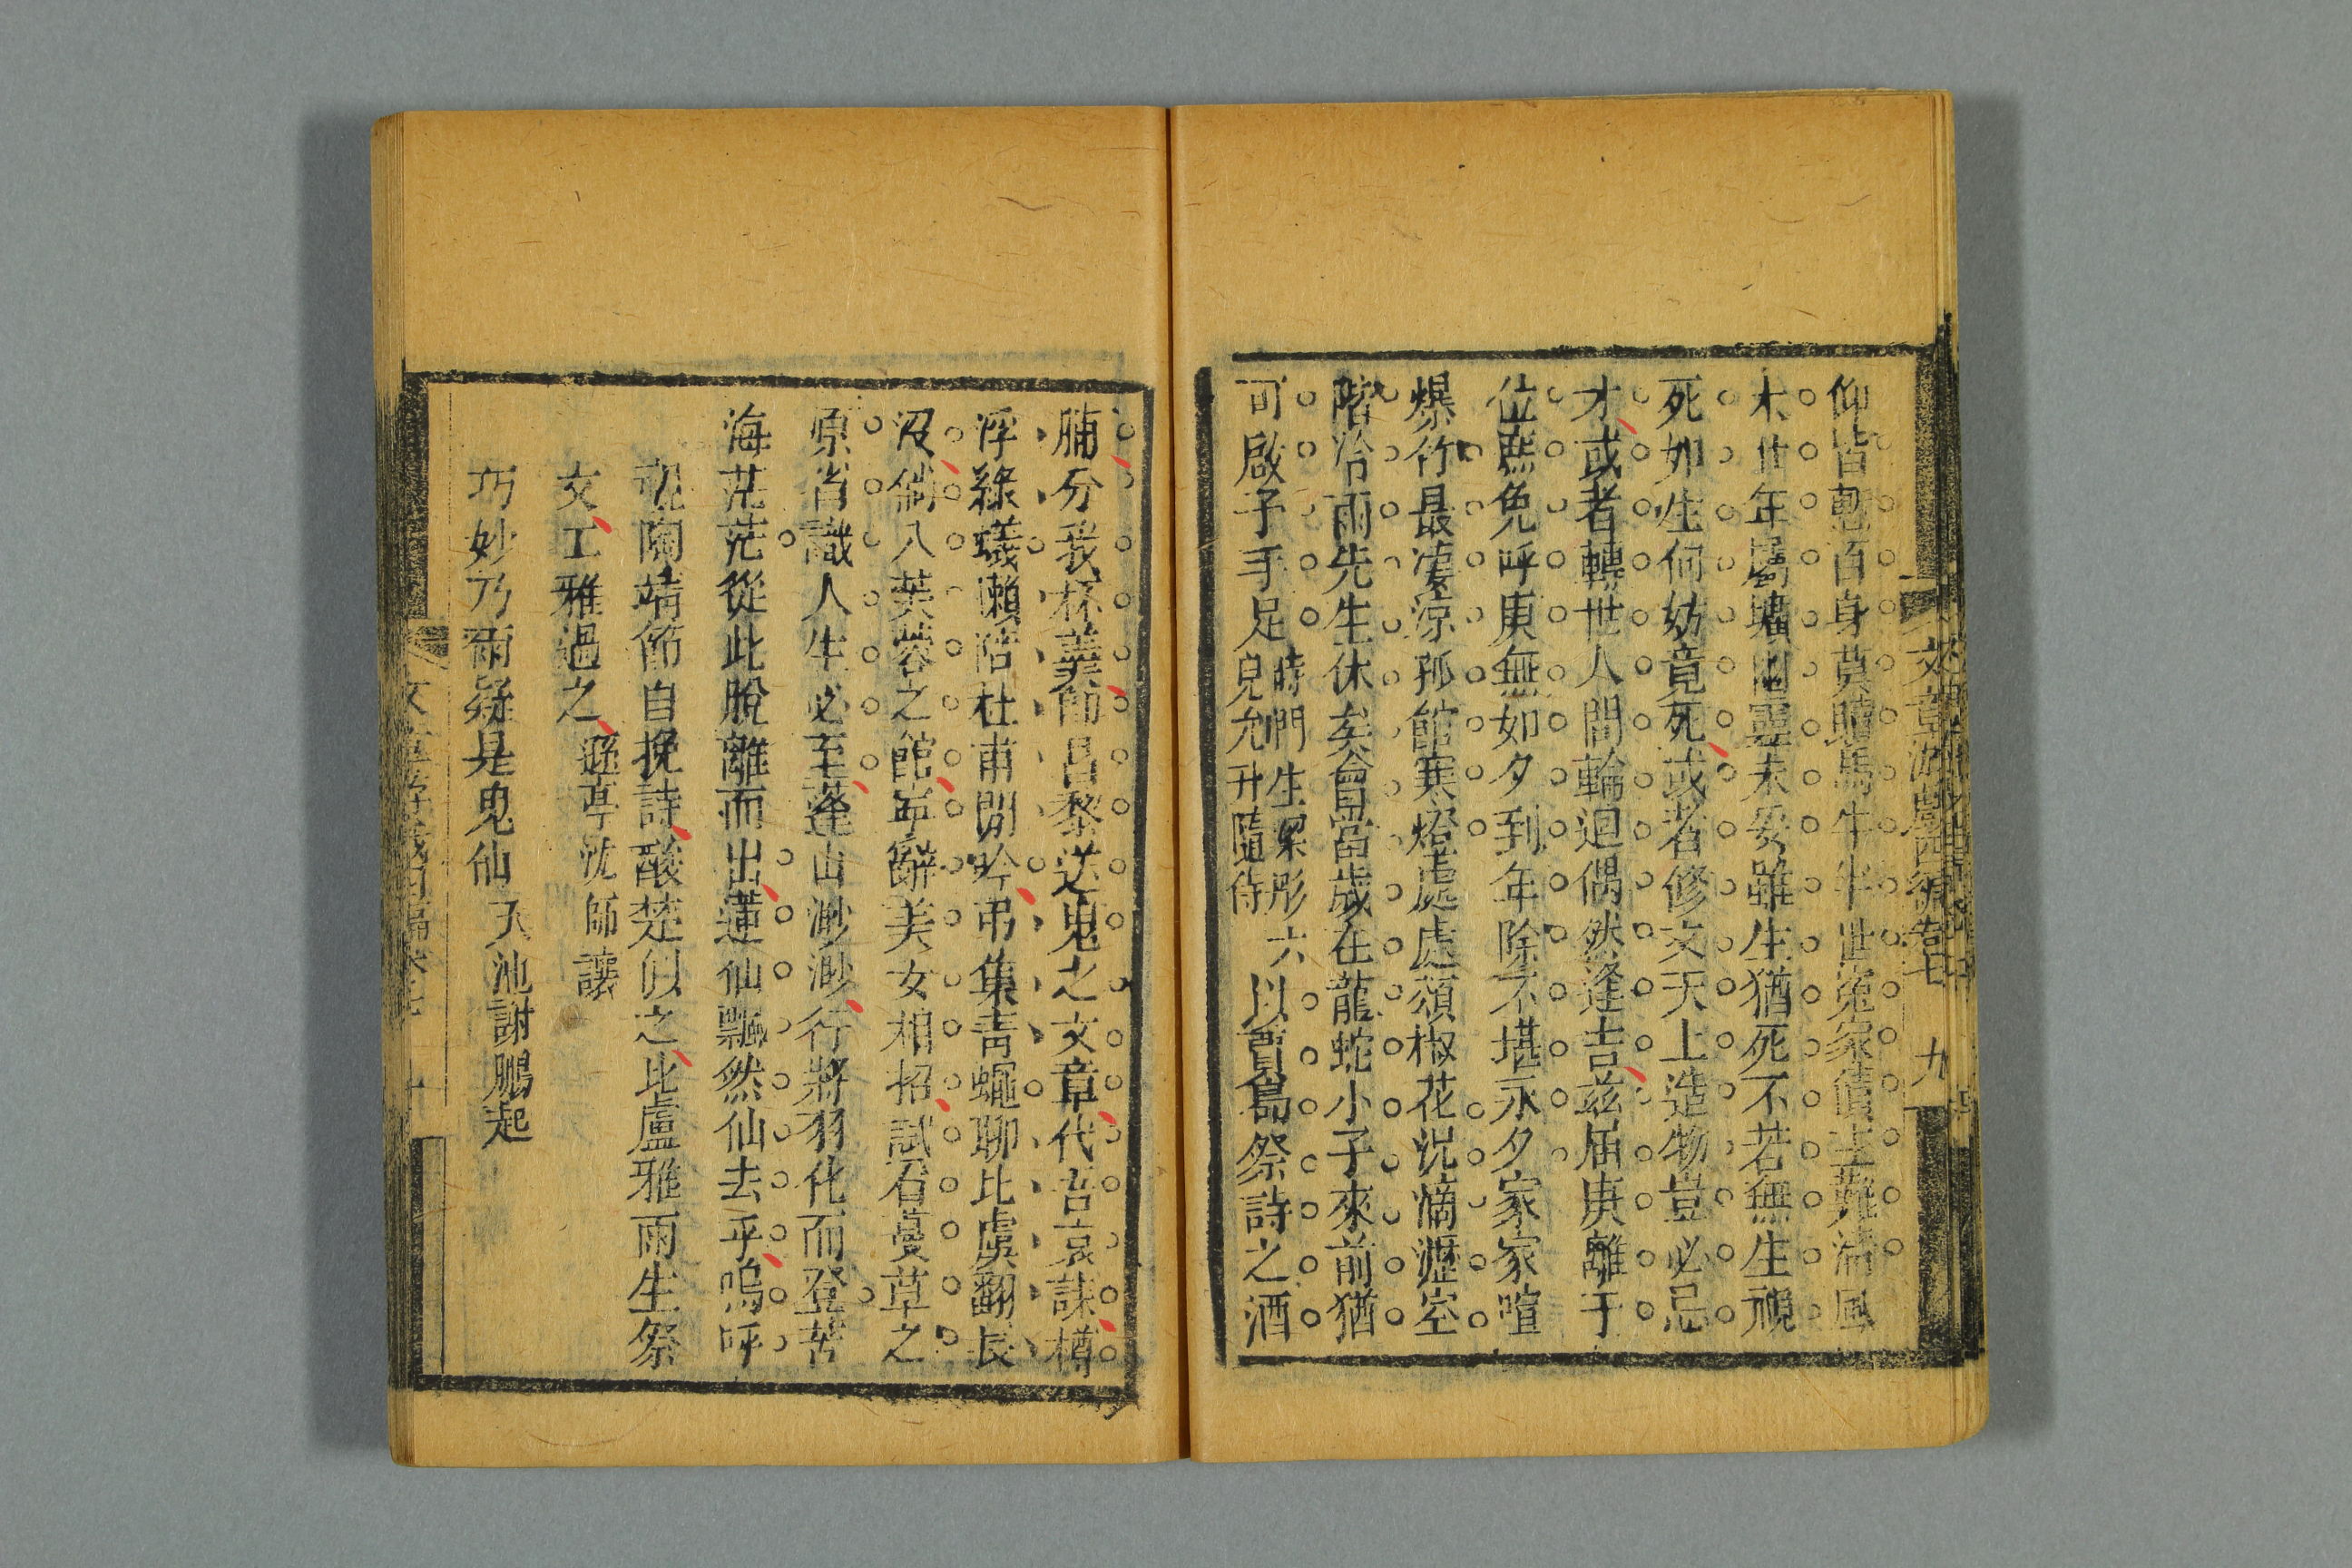 文章游戲四編卷七 九
仰皆慙百身莫贖馬牛半世寃家債主難清風
木廿年屬壙幽靈未妥雖生猶死不若無生視
死如生何妨竟死或者修文天上造物豈必忌
才或者轉世人間輪迴偶然逢吉兹届庚離于
位藨免呼庚無如夕到年除不堪永夕家家喧
爆竹最凄涼孤館寒燈處處頌椒花況滴瀝空
階冷雨先生休矣會當歲在龍蛇小子來前猶
可啟予手足時門生梁彤六
兒允升隨侍以賈島祭詩之酒
脯分我杯羹俻昌黎送鬼之文章代吾哀誄樽
浮綠蟻懶陪杜甫閒吟弔集青蠅聊比虞翻長
没倘入芙蓉之館甯辭美女相招試召蔓草之
原肯識人生必至蓬山渺渺行將羽化而登苦
海茫茫從此脫離而出蓮仙飄然仙去乎嗚呼
視陶靖節自挽詩酸楚似之比盧雅雨生祭
文工雅過之 遜亭沈師讓
巧妙乃爾疑是鬼仙 天池謝鵬起
文章游戲四編卷七 十